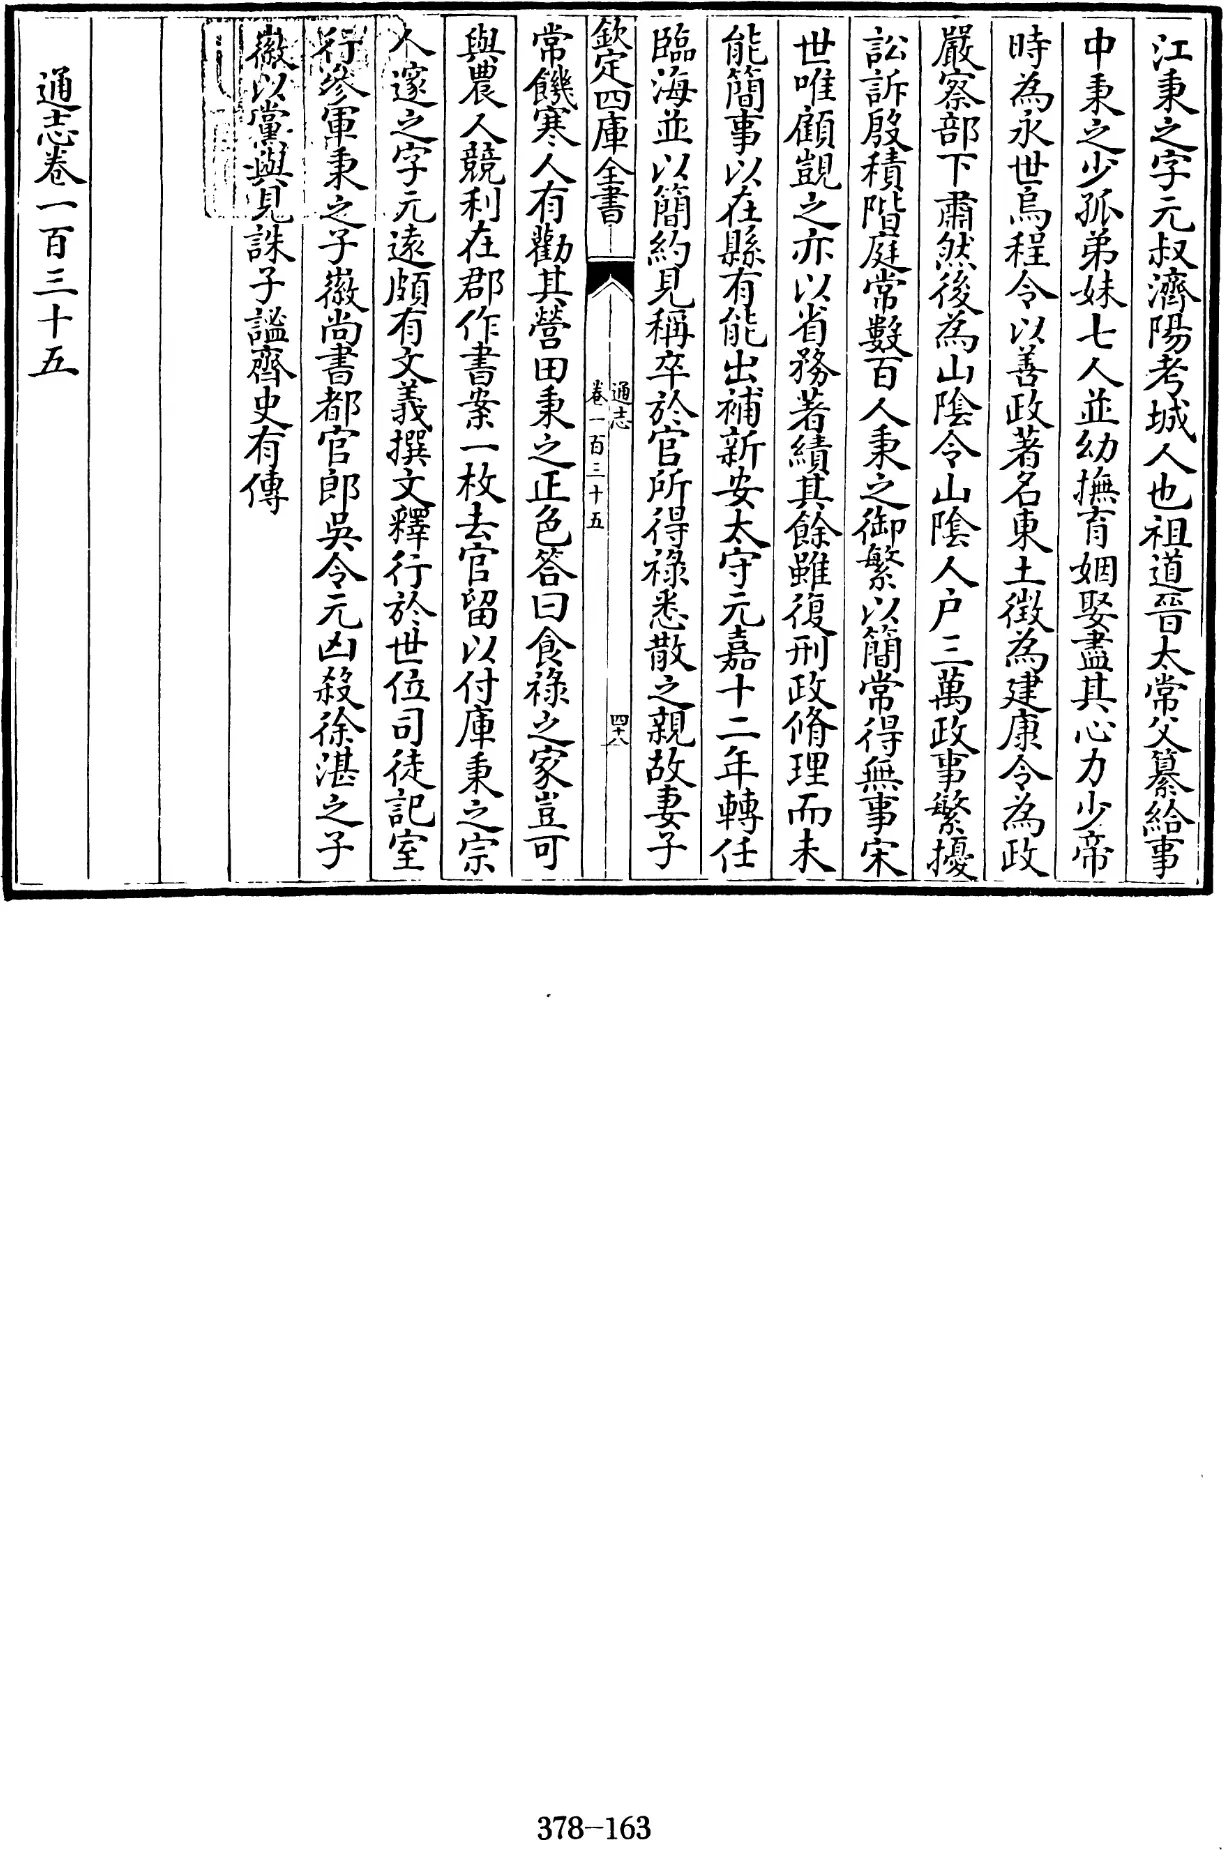 江秉之字元叔濟陽考城人也祖逌晉太常父纂給事
中秉之少孤弟妹七人並幼撫育姻娶盡其心力少帝
時為永世烏程令以善政著名東土徴為建康令為政
嚴察部下肅然後為山隂令山隂人户三萬政事繁擾
訟訴殷積階庭常數百人秉之御繁以簡常得無事宋
世唯顧覬之亦以省務著績其餘雖復刑政脩理而未
能簡事以在縣有能出補新安太守元嘉十二年轉任
臨海並以簡約見稱卒於官所得祿悉散之親故妻子
欽定四庫全書
通志
卷一百三十五
四十八
常饑寒人有勸其營田秉之正色答曰食祿之家豈可
與農人競利在郡作書案一枚去官留以付庫秉之宗
人邃之字元遠頗有文義撰文釋行於世位司徒記室
行參軍秉之子徽尚書都官郎吳令元凶殺徐湛之子
徽以黨與見誅子謐齊史有傳
通志卷一百三十五
378-163